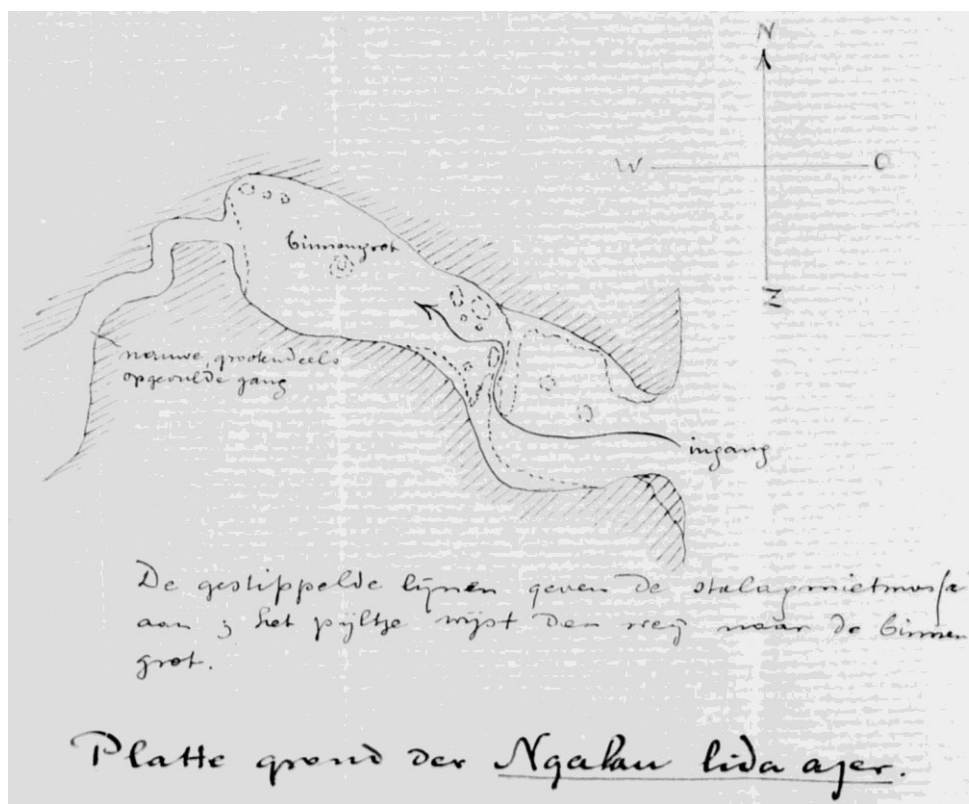 N
W
O
Z
binnengrot
nauwe, grootendeels
opgevulde gang
ingang
De gestippelde lijnen geven de stalagmietmassa
aan; het pijltje wijst den weg naar de binnen
grot.
Platte grond der Ngalau lida ajer.